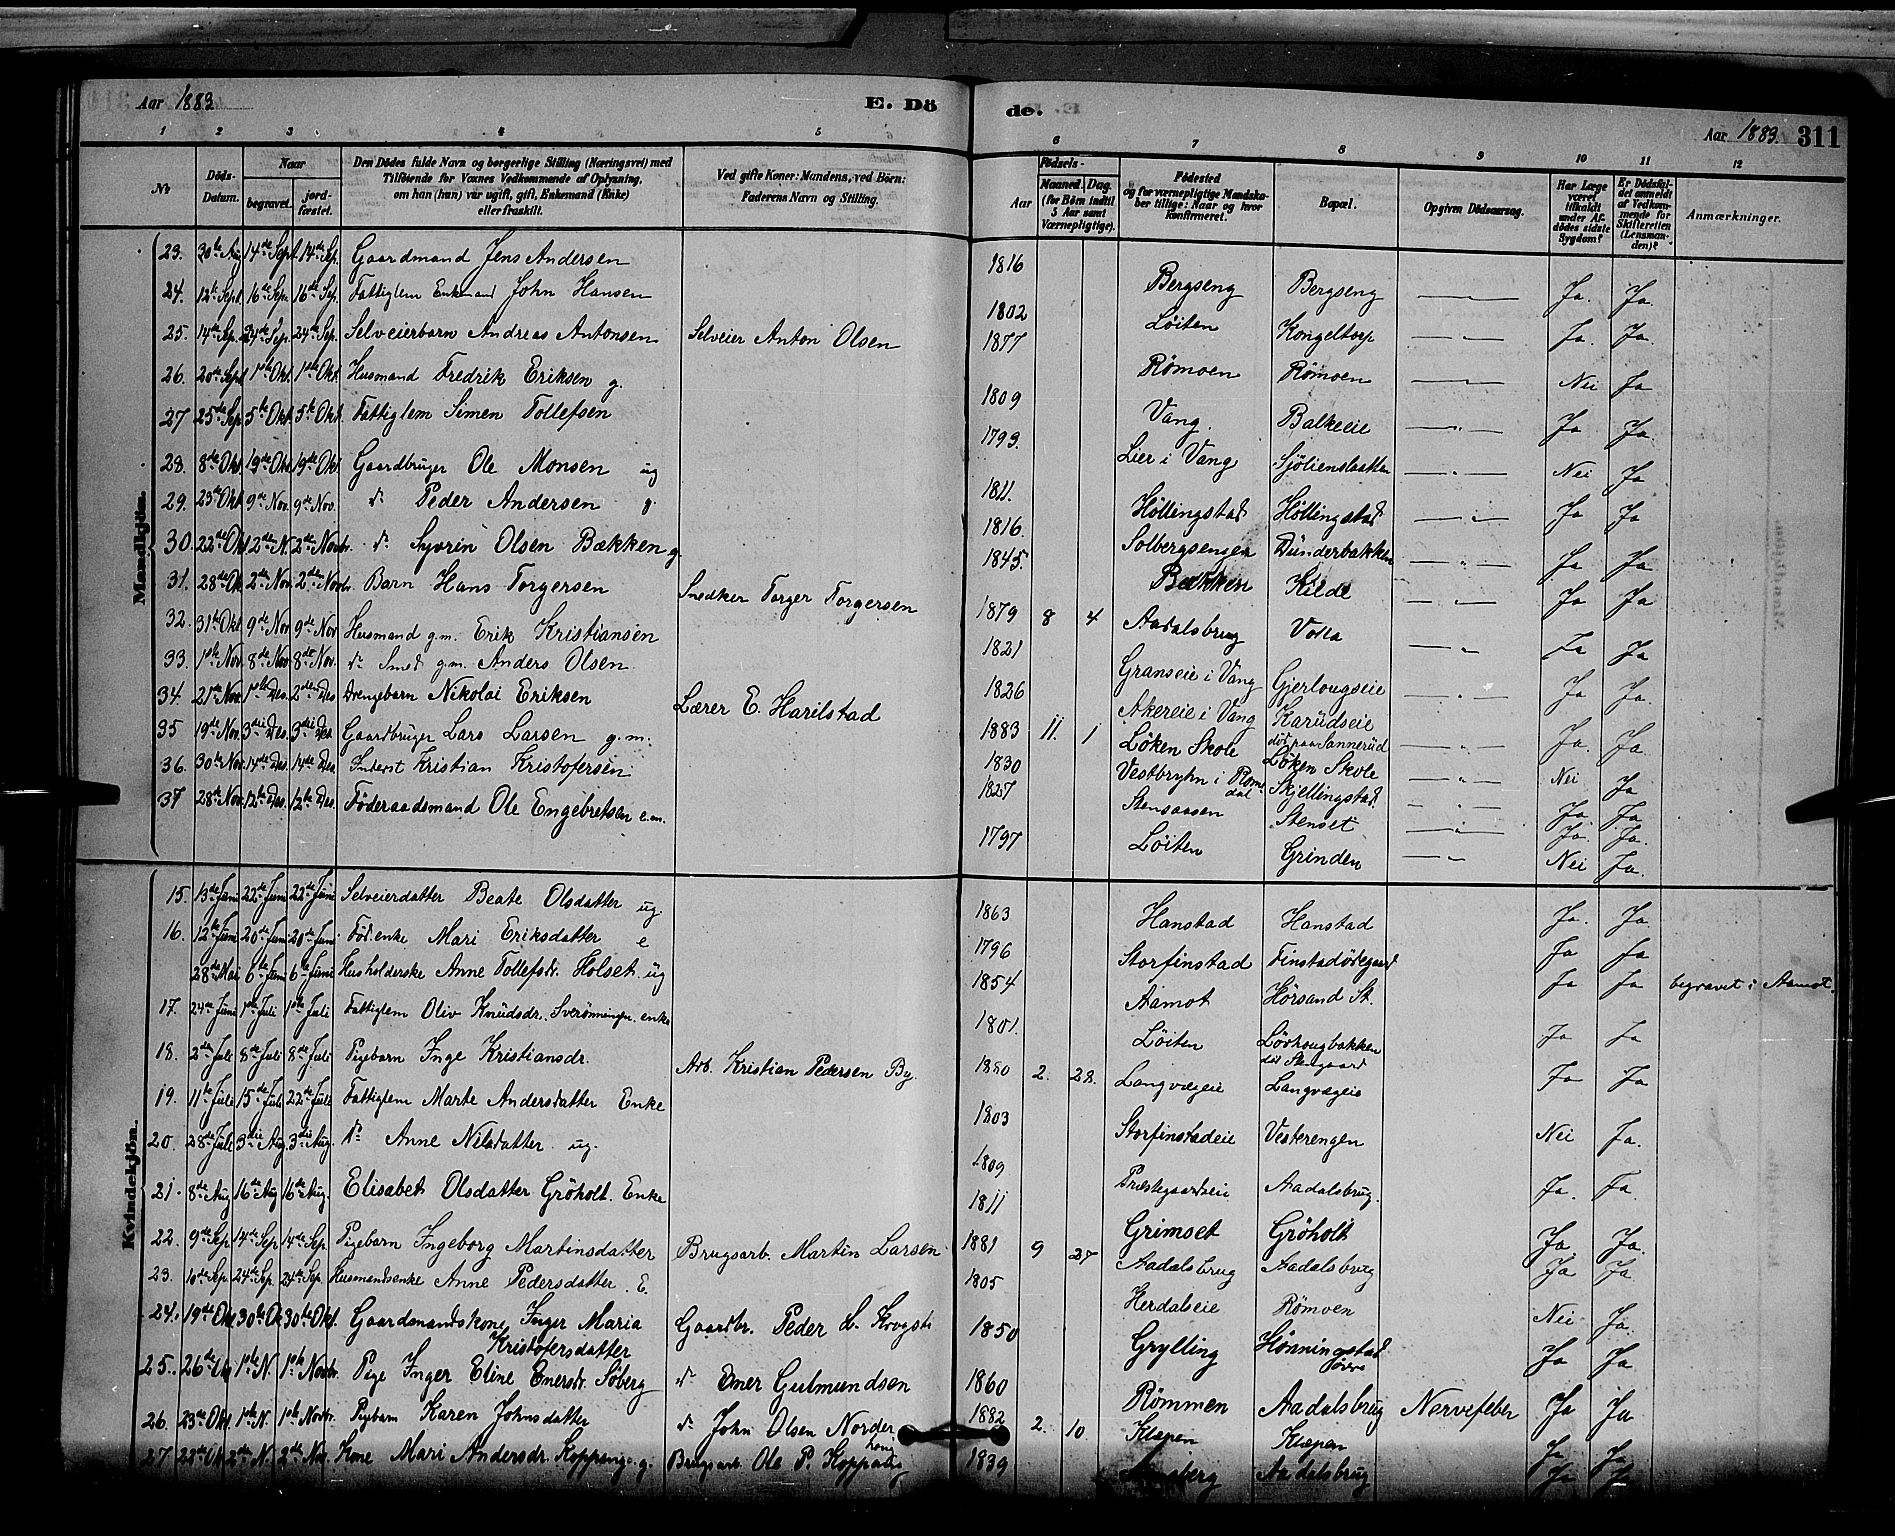 Aar 1883. E. Dö
1 2 3 4 5
No Döds-Datum. Naar begravet. jord-fæstet. Den Dödes fulde Navn og borgerlige Stilling (Næringsvei) med Tilföiende for Voxnes Vedkommende af Oplysning, om han (hun) var ugift, gift, Enkemand (Enke) eller fraskilt. Ved gifte Koner: Mandens, ved Börn: Faderens Navn og Stilling.
Mandkjön.
23. 30te Aug 14de Sept. 14de Sep. Gaardmand Jens Andersen
24. 12te Sept. 16de Sep. 16de Sep. Fattiglem Enkemand John Hansen
25. 14de Sep. 24de Sep. 24de Sep. Selveierbarn Andreas Antonsen Selveier Anton Olsen
26. 20de Sept 1ste Okt. 1ste Okt. Husmand Fredrik Eriksen g.
27 25de Sep 5te Okt. 5te Okt. Fattiglem Simen Tollefsen
28. 8de Okt 19de Okt 19de Okt Gaardbruger Ole Monsen ug
29. 23de Okt 9de Nov. 9de Nov. do Peder Andersen g
30. 22de Okt 2de N. 2de Novbr. do Syvrin Olsen Bækken g
31. 28de Ok 2de Nov 2den Novbr. Barn Hans Torgersen Snedker Torger Torgersen
32. 31te Okt 9de Nov 9de Nov Husmand g.m. Erik Kristiansen
33. 1ste Nov. 8de Nov 8de Nov. do Smed g.m. Anders Olsen
34. 21de Nov 1ste Des. 2den Des Drengebarn Nikolai Eriksen Lærer E. Harilstad
35 19de Nov 3die Des. 3die Des. Gaardbruger Lars Larsen g.m.
36. 30te Nov. 14de Des. 14de Des. Inderst Kristian Kristofersen
37 28de Nov. 12te Des. 12te Des. Föderaadsmand Ole Engebretsen e.m.
Kvindekjön.
15. 13de Juni 22de Juni 22de Juni Selveierdatter Beate Olsdatter ug.
16. 12te Juni 20de Juni 20de Juni Föd.enke Mari Eriksdatter e
28de Mai 6te Juni 6te Juni Husholderske Anne Tollefsdr. Holset. ug
17. 24de Juni 1ste Juli 1ste Juli Fattiglem Oliv Knüdsdr. enke
18. 2de Juli 8de Juli 8de Juli Pigebarn Inge Kristiansdr. Arb. Kristian Pedersen By.
19. 11te Juli 15de Juli 22de Juli Fattiglem Marte Andersdatter Enke
20. 28de Juli 3die Aug. 3die Aug. do Anne Nilsdatter ug.
21. 8de Aug 16de Aug 16de Aug. Elisabet Olsdatter Gröholt. Enke
22. 9de Sep 14de Sep 14de Sep Pigebarn Ingeborg Martinsdatter Brugsarb. Martin Larsen
23. 10de Sep 24de Sep. 24de Sep Husmandsenke Anne Pedersdatter. E.
24. 19de Okt 30te Ok 30te Okt. Gaardmandskone Inger Maria Gaardbr. Peder
Kristofersdatter
25. 26de Ok 1ste N. 1ste Novbr. Pige Inger Eline Enersdr. Söberg do Ener Gulmundsen
26. 23de Okt 1ste N. 1ste Novbr. Pigebarn Karen Johnsdatter do John Olsen Norder
haug
27 22de Ok 2de N. 2de Nov. Kone Mari Andersdr. Koppang. g. Brugsarb. Ole P. Koppang
de. Aar 1883. 311
6 7 8 9 10 11 12
Födsels- Aar Maaned. Dag. (for Börn indtil 5 Aar samt Værnepligtige). Födested og for værnepligtige Mandskaber tillige: Naar og hvor konfirmeret. Bopæl. Opgiven Dödsaarsag. Har Læge været tilkaldt under Afdödes sidste Sygdom? Er Dödsfaldet anmeldt af Vedkommende for Skifteretten (Lensmanden)? Anmærkninger.
1816 Bergseng Bergseng Ja. Ja.
1802 Löiten Kongeltorp Ja. Ja.
1877 Römoen Römoen Nei Ja
1809 Vang. Balkeeie Ja Ja.
1793. Lier i Vang Sjölienslaatten Nei Ja
1811. Höllingstad Höllingstad Ja Ja
1816. Solbergsengen Dünderbakken Ja Ja
1845. Bækken Kilde Ja Ja
1879 8 4 Aadalsbrug Volla Ja Ja
1821 Granseie i Vang Gjerlougseie Ja Ja.
1826 Akereie i Vang Karüdseie Ja. Ja.
1883 11. 1 Löken Skole död paa Sannerüd
Löken Skole Nei Ja
1830 Vestbryhn i Rome
dal Skjellingstad. Ja. Ja
1827 Stensaasen Stenset Ja. Ja.
1797 Löiten Grinden Nei Ja.
1863 Hanstad Hanstad Ja. Ja.
1796 Storfinstad Finstadödegaard Ja Ja
1854 Aamot Hörsand St. Ja Ja begravet i Aamot.
1801. Löiten Lövhougbakken Ja Ja
1880 2. 28. Langvægeie Langvægeie Ja Ja
1803 Storfinstadeie Vesterengen Nei Ja.
1809 Præstegaardseie Aadalsbrug. Ja. Ja.
1811 Grimset Gröholt Ja. Ja.
1881 9 27 Aadalsbrug Aadalsbrug Ja Ja.
1805 Herdalseie Römoen Nei Ja.
1850 Grylling Hönningstad Ja Ja
1860 Römmen Aadalsbrug Nervefeber Ja Ja
1882 2. 10. Klæpen Klæpen Ja Ja
1839 Aadalsbrug Ja Ja